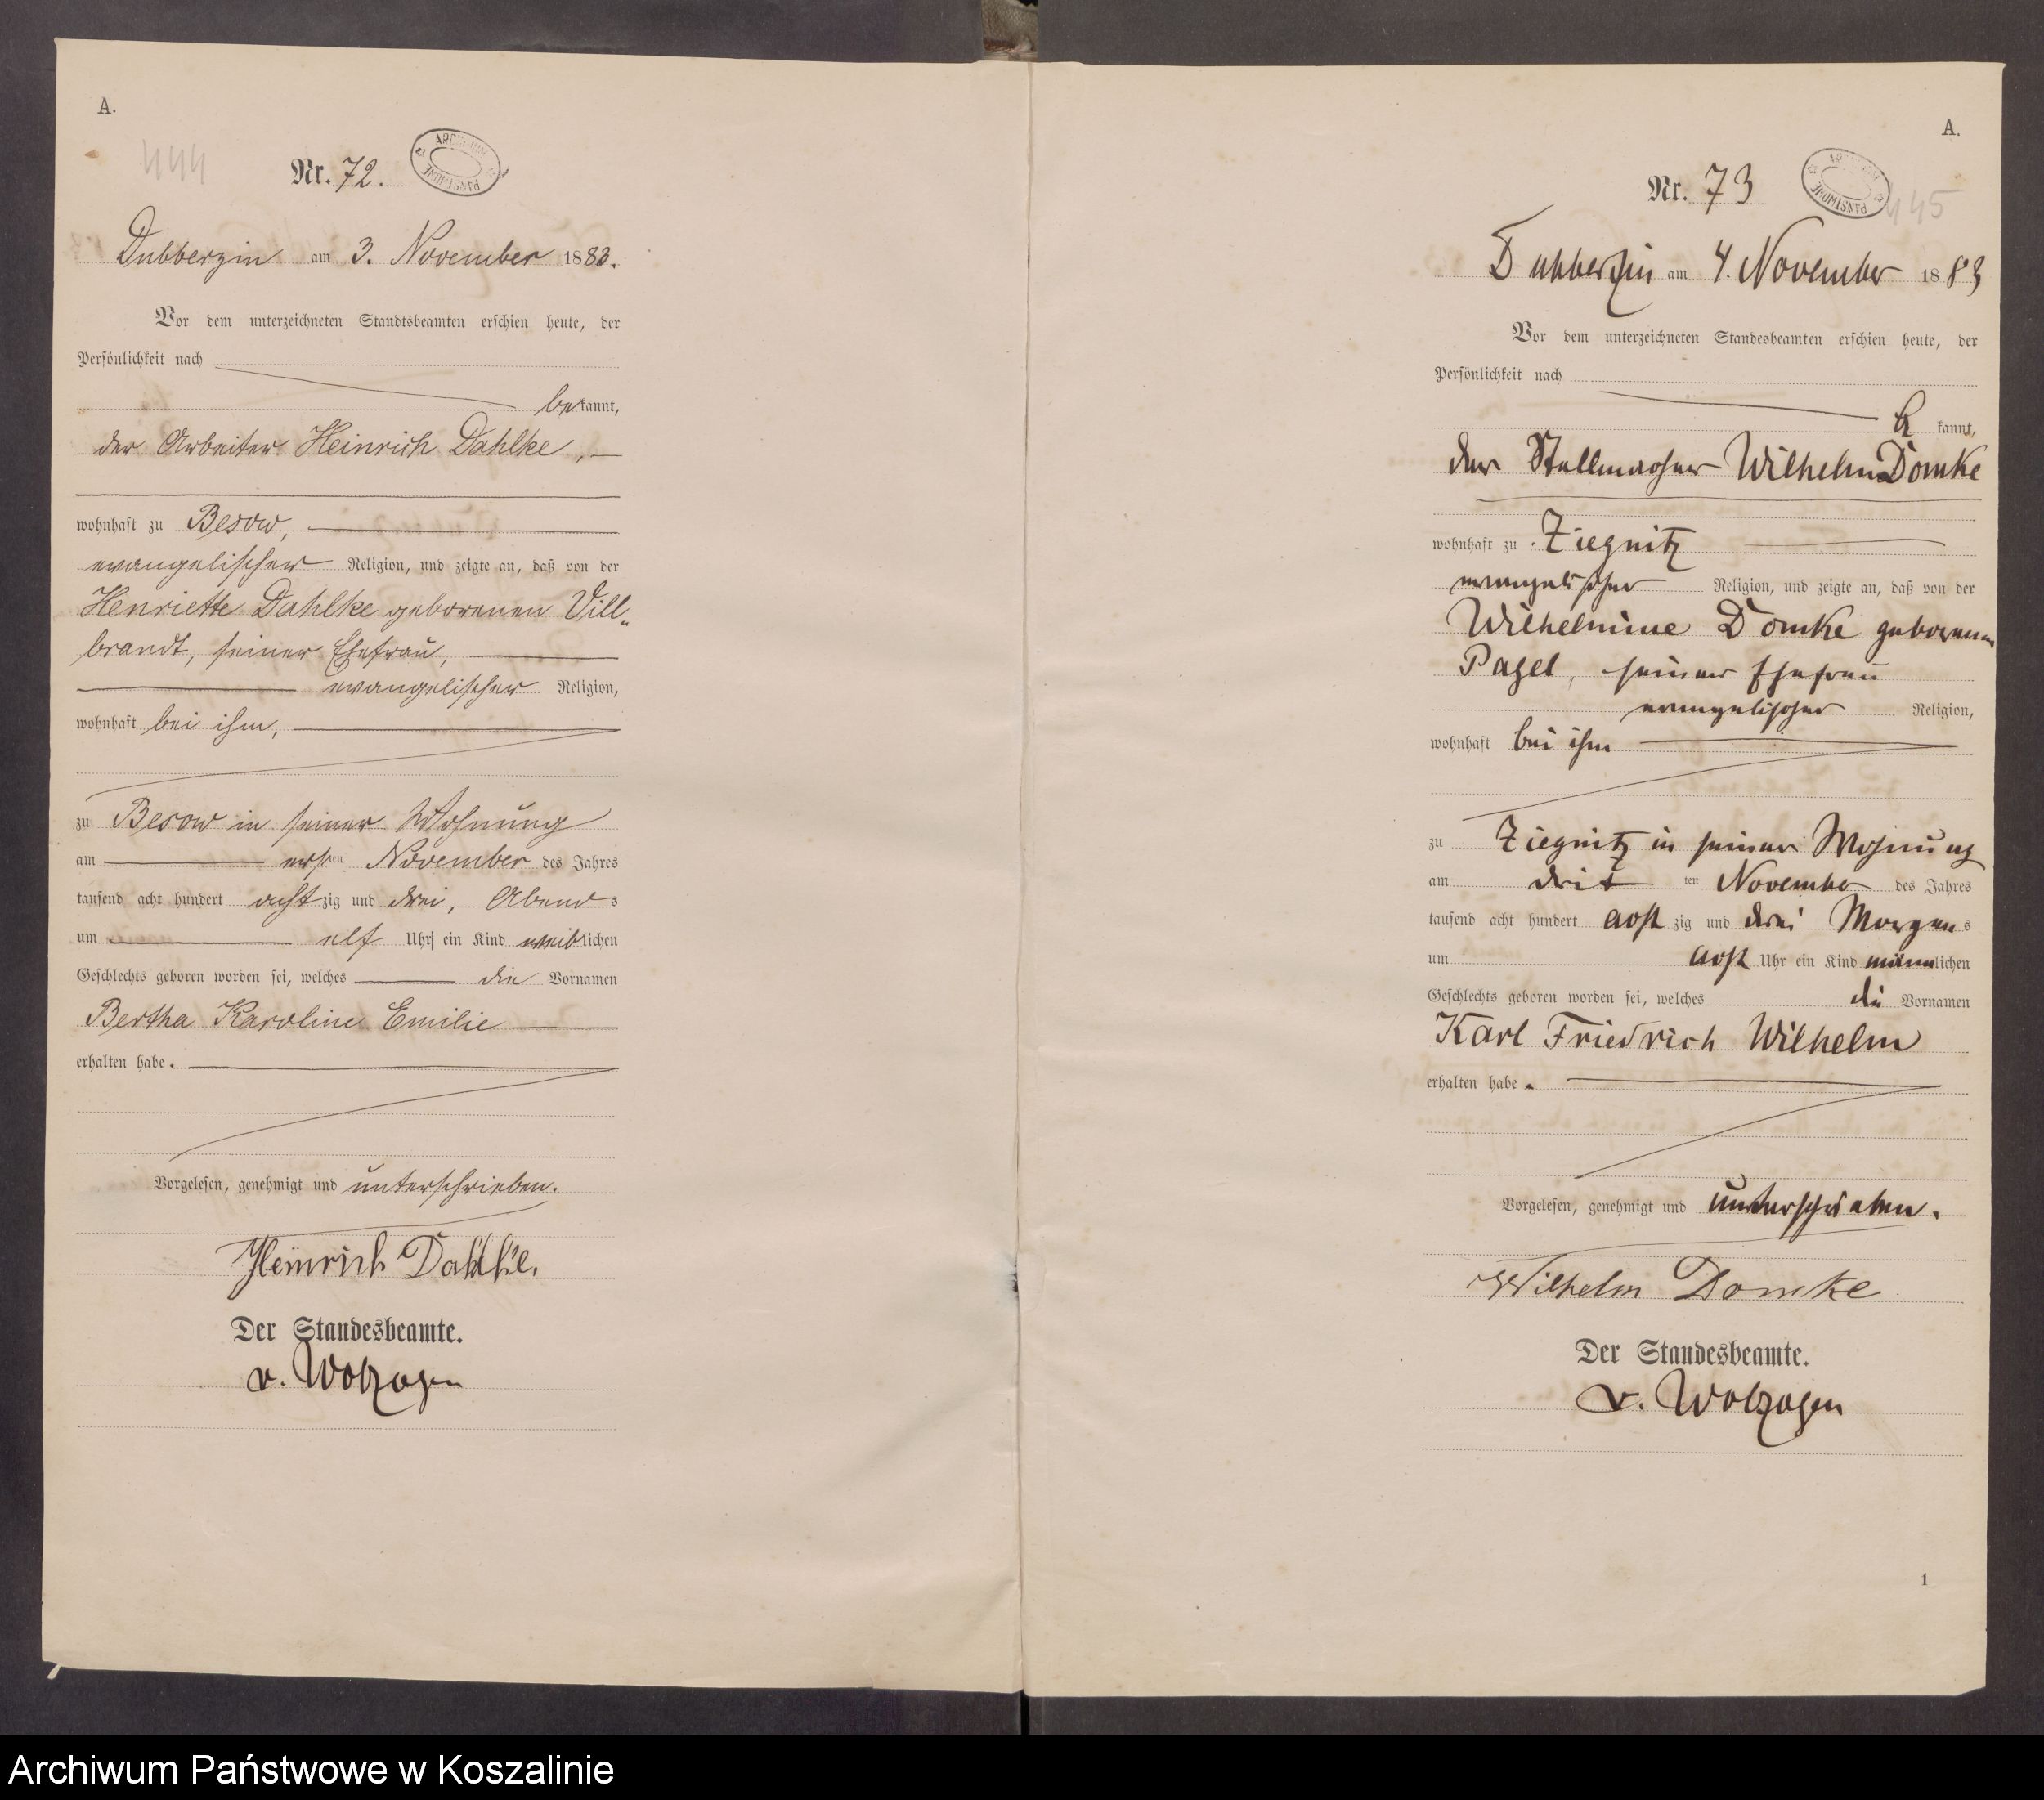 A.
444
Nr. 72.
ARCHIWUM PAŃSTWOWE
Dubberzin am 3. November 1883.
Vor dem unterzeichneten Standtsbeamten erschien heute, der
Persönlichkeit nach
bekannt,
der Arbeiter Heinrich Dahlke,
wohnhaft zu Besow,
evangelischer Religion, und zeigte an, daß von der
Henriette Dahlke geborenen Vill„
brandt, seiner Ehefrau,
evangelischer Religion,
wohnhaft bei ihm,
zu Besow in seiner Wohnung
am ersten November des Jahres
tausend acht hundert achtzig und drei, Abends
um elf Uhr ein Kind weiblichen
Geschlechts geboren worden sei, welches die Vornamen
Bertha Karoline Emilie
erhalten habe.
Vorgelesen, genehmigt und unterschrieben.
Heinrich Dahlke.
Der Standesbeamte.
v. Wolzogen
A.
Nr. 73
ARCHIWUM PAŃSTWOWE
445
Dubberzin am 4. November 1883
Vor dem unterzeichneten Standesbeamten erschien heute, der
Persönlichkeit nach
kannt,
der Stellmacher Wilhelm Domke
wohnhaft zu Ziegnitz
evangelischer Religion, und zeigte an, daß von der
Wilhelmine Domke geborenen
Pagel, seiner Ehefrau
evangelischer Religion,
wohnhaft bei ihm
zu Ziegnitz in seiner Wohnung
am dritten November des Jahres
tausend acht hundert achtzig und drei Morgens
um acht Uhr ein Kind männlichen
Geschlechts geboren worden sei, welches die Vornamen
Karl Friedrich Wilhelm
erhalten habe.
Vorgelesen, genehmigt und unterschrieben.
Wilhelm Domke
Der Standesbeamte.
v. Wolzogen
1
Archiwum Państwowe w Koszalinie